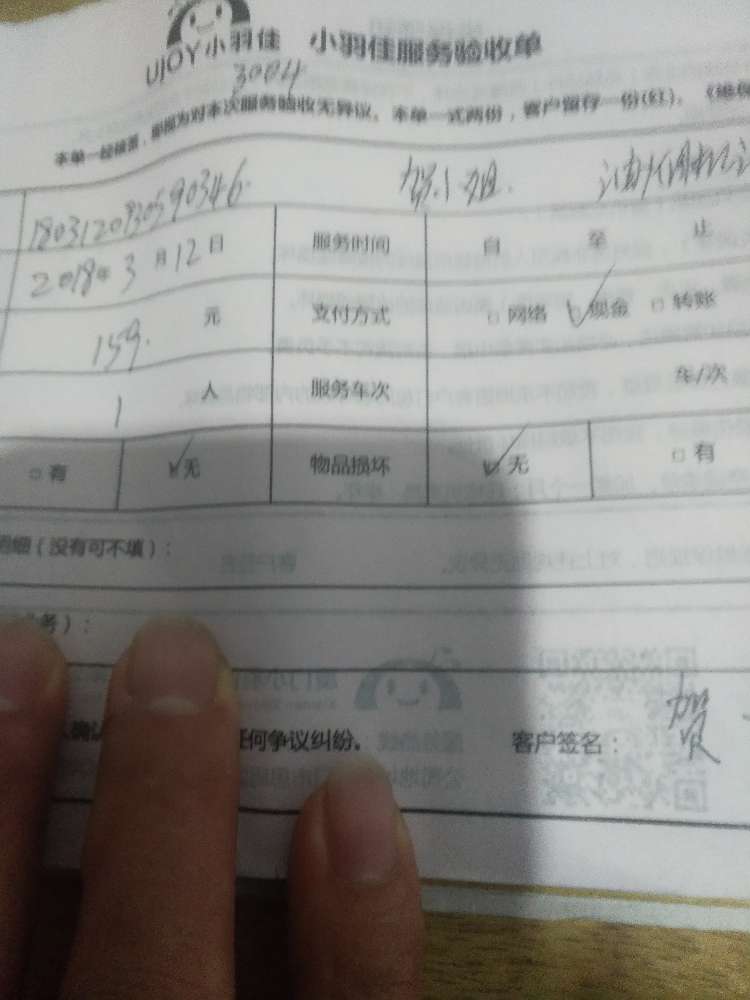 UJOY小羽佳 小羽佳服务验收单
3004
本单一经核签，即视为对本次服务验收无异议。本单一式两份，客户留存一份(红)。
1803120930590346 贺小姐 油烟机
2018年3月12日 服务时间 自 至 止
159. 元 支付方式 □网络 ☑现金 □转账
1 人 服务车次 车/次
□有 ☑无 物品损坏 ☑无 □有
明细（没有可不填）：
务）：
确认 任何争议纠纷。 客户签名： 贺